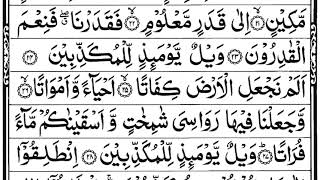 مَّكِيْنٍ ۙ﴿۲۱﴾ اِلٰى قَدَرٍ مَّعْلُوْمٍ ۙ﴿۲۲﴾ فَقَدَرْنَا ۖ فَنِعْمَ
الْقٰدِرُوْنَ ﴿۲۳﴾ وَيْلٌ يَّوْمَىِٕذٍ لِّلْمُكَذِّبِيْنَ ﴿۲۴﴾
اَلَمْ نَجْعَلِ الْاَرْضَ كِفَاتًا ۙ﴿۲۵﴾ اَحْيَآءً وَّ اَمْوَاتًا ۙ﴿۲۶﴾
وَّ جَعَلْنَا فِيْهَا رَوَاسِىَ شٰمِخٰتٍ وَّ اَسْقَيْنٰكُمْ مَّآءً
فُرَاتًا ؕ﴿۲۷﴾ وَيْلٌ يَّوْمَىِٕذٍ لِّلْمُكَذِّبِيْنَ ﴿۲۸﴾ اِنْطَلِقُوْۤا